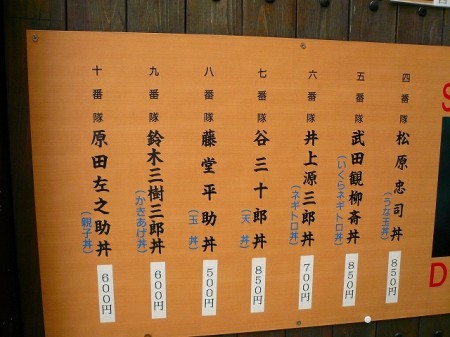 四番隊 松原忠司丼
(うな玉丼)
850円
五番隊 武田観柳斎丼
(いくらネギトロ丼)
850円
六番隊 井上源三郎丼
(ネギトロ丼)
700円
七番隊 谷三十郎丼
(天丼)
850円
八番隊 藤堂平助丼
(玉丼)
500円
九番隊 鈴木三樹三郎丼
(かきあげ丼)
600円
十番隊 原田左之助丼
(親子丼)
600円
S
D